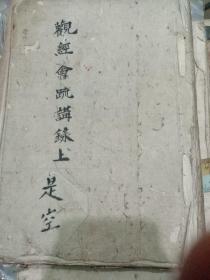 觀經會疏講錄上
是空